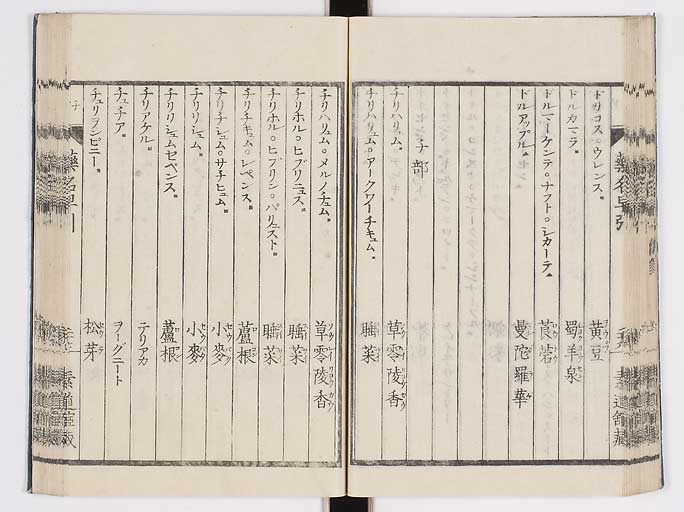 ドリコス。ウレンス。 黄豆
ドルカマラ。 蜀羊泉
ドルマーケンテ。ナフト。シカーテ。 莨菪
ドルアップル。 曼陀羅華
チ部
チリハリュム。 草零陵香
チリハリュム。アークワーチキュム。 睡菜
チリハリュム。メルノチュム。 草零陵香
チリホル。ヒブリニュス。 睡菜
チリホル。ヒブリン。パリュスト。 睡菜
チリチキュム。レペンス。 蘆根
チリチシュム。サチヒュム。 小麥
チリリシュム。 小麥
チリリシュムセペンス。 蘆根
チリアケル。 テリアカ
チュチア。 ヲーグニート
チュリランピニー。 松芽
藥名早引